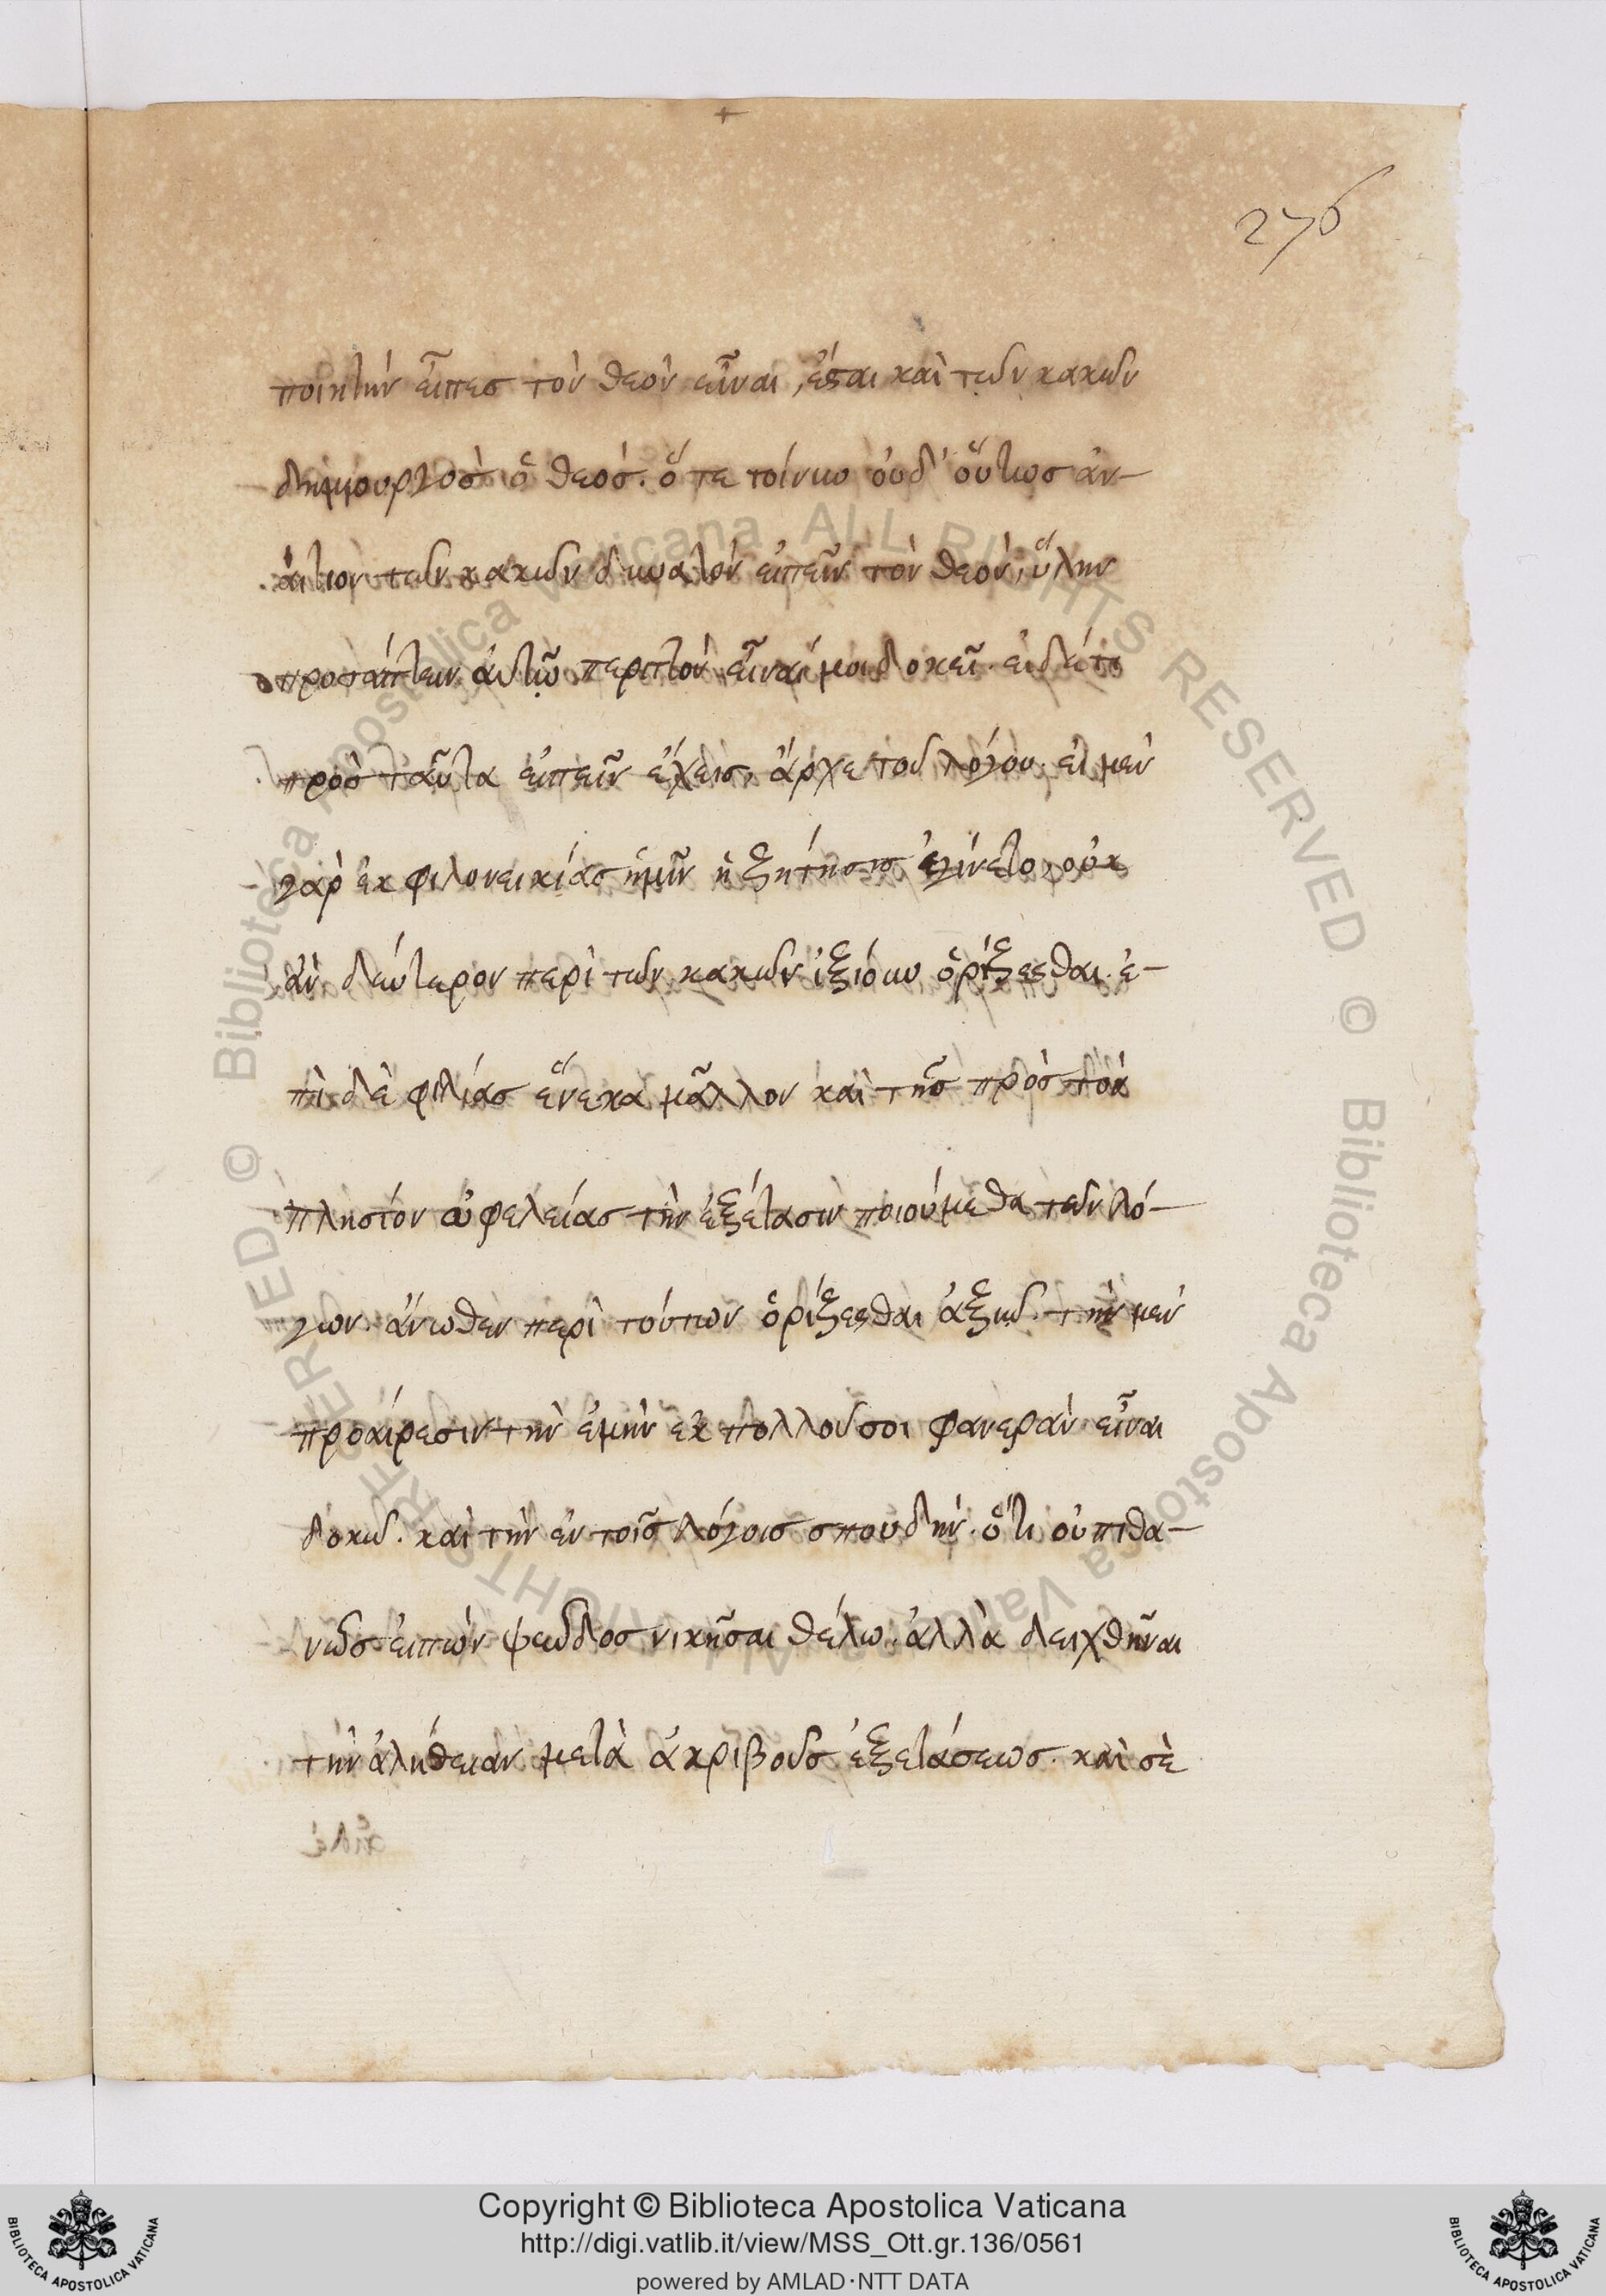 276
ποιητὴν εἶπες τὸν θεὸν εἶναι, ἔσται καὶ τῶν κακῶν
δημιουργὸς ὁ θεός. ὅτε τοίνυν οὐδ' οὕτως ἀν-
αίτιον τῶν κακῶν δυνατὸν εἰπεῖν τὸν θεὸν, ὕλην
προσάπτειν αὐτῷ περιττὸν εἶναί μοι δοκεῖ. εἰ δέ τι
πρὸς ταῦτα εἰπεῖν ἔχεις, ἄρχε τοῦ λόγου. εἰ μὲν
γὰρ ἐκ φιλονεικίας ἡμῖν ἡ ζήτησις ἐγίνετο, οὐκ
ἂν δεύτερον περὶ τῶν κακῶν ἠξίουν ὁρίζεσθαι. ἐ-
πὶ δὲ φιλίας ἕνεκα μᾶλλον καὶ τῆς πρὸς τὸν
πλησίον ὠφελείας τὴν ἐξέτασιν ποιούμεθα τῶν λό-
γων. ἄνωθεν περὶ τούτων ὁρίζεσθαι ἀξιῶ. τὴν μὲν
προαίρεσιν τὴν ἐμὴν ἐκ πολλοῦ σοι φανερὰν εἶναι
δοκῶ. καὶ τὴν ἐν τοῖς λόγοις σπουδήν. ὅτι οὐ πιθα-
νῶς εἰπὼν ψεῦδος νικῆσαι θέλω. ἀλλὰ δειχθῆναι
τὴν ἀλήθειαν μετὰ ἀκριβοῦς ἐξετάσεως. καὶ σὲ
Copyright © Biblioteca Apostolica Vaticana
http://digi.vatlib.it/view/MSS_Ott.gr.136/0561
powered by AMLAD·NTT DATA
BIBLIOTECA APOSTOLICA VATICANA
BIBLIOTECA APOSTOLICA VATICANA
© Biblioteca Apostolica Vaticana ALL RIGHTS RESERVED © Biblioteca Apostolica Vaticana ALL RIGHTS RESERVED